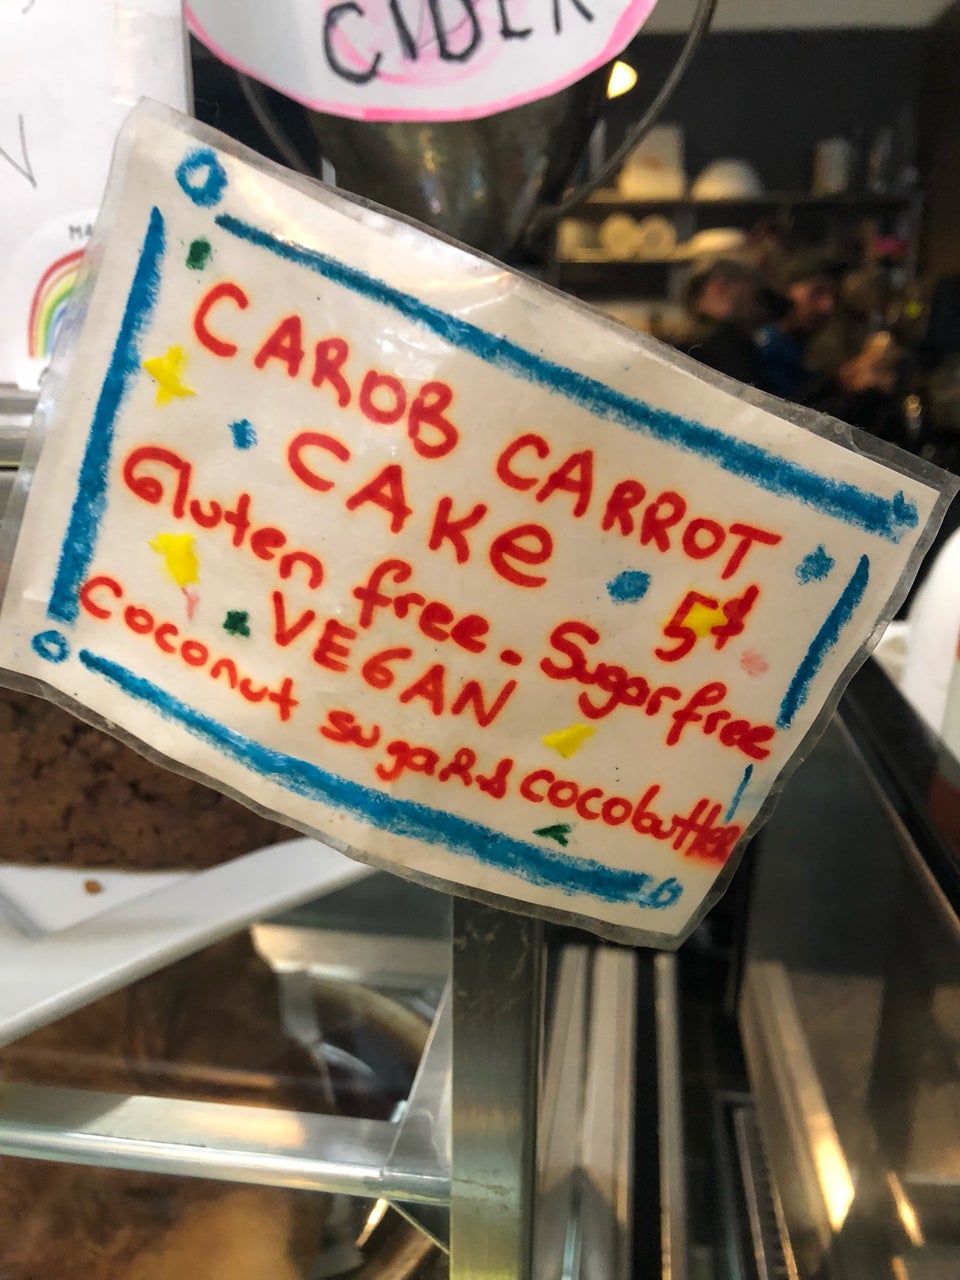 CIDER
MA
CAROB CARROT
CAKE 5$
Gluten free - Sugar free
VEGAN
Coconut sugar & cocobutter